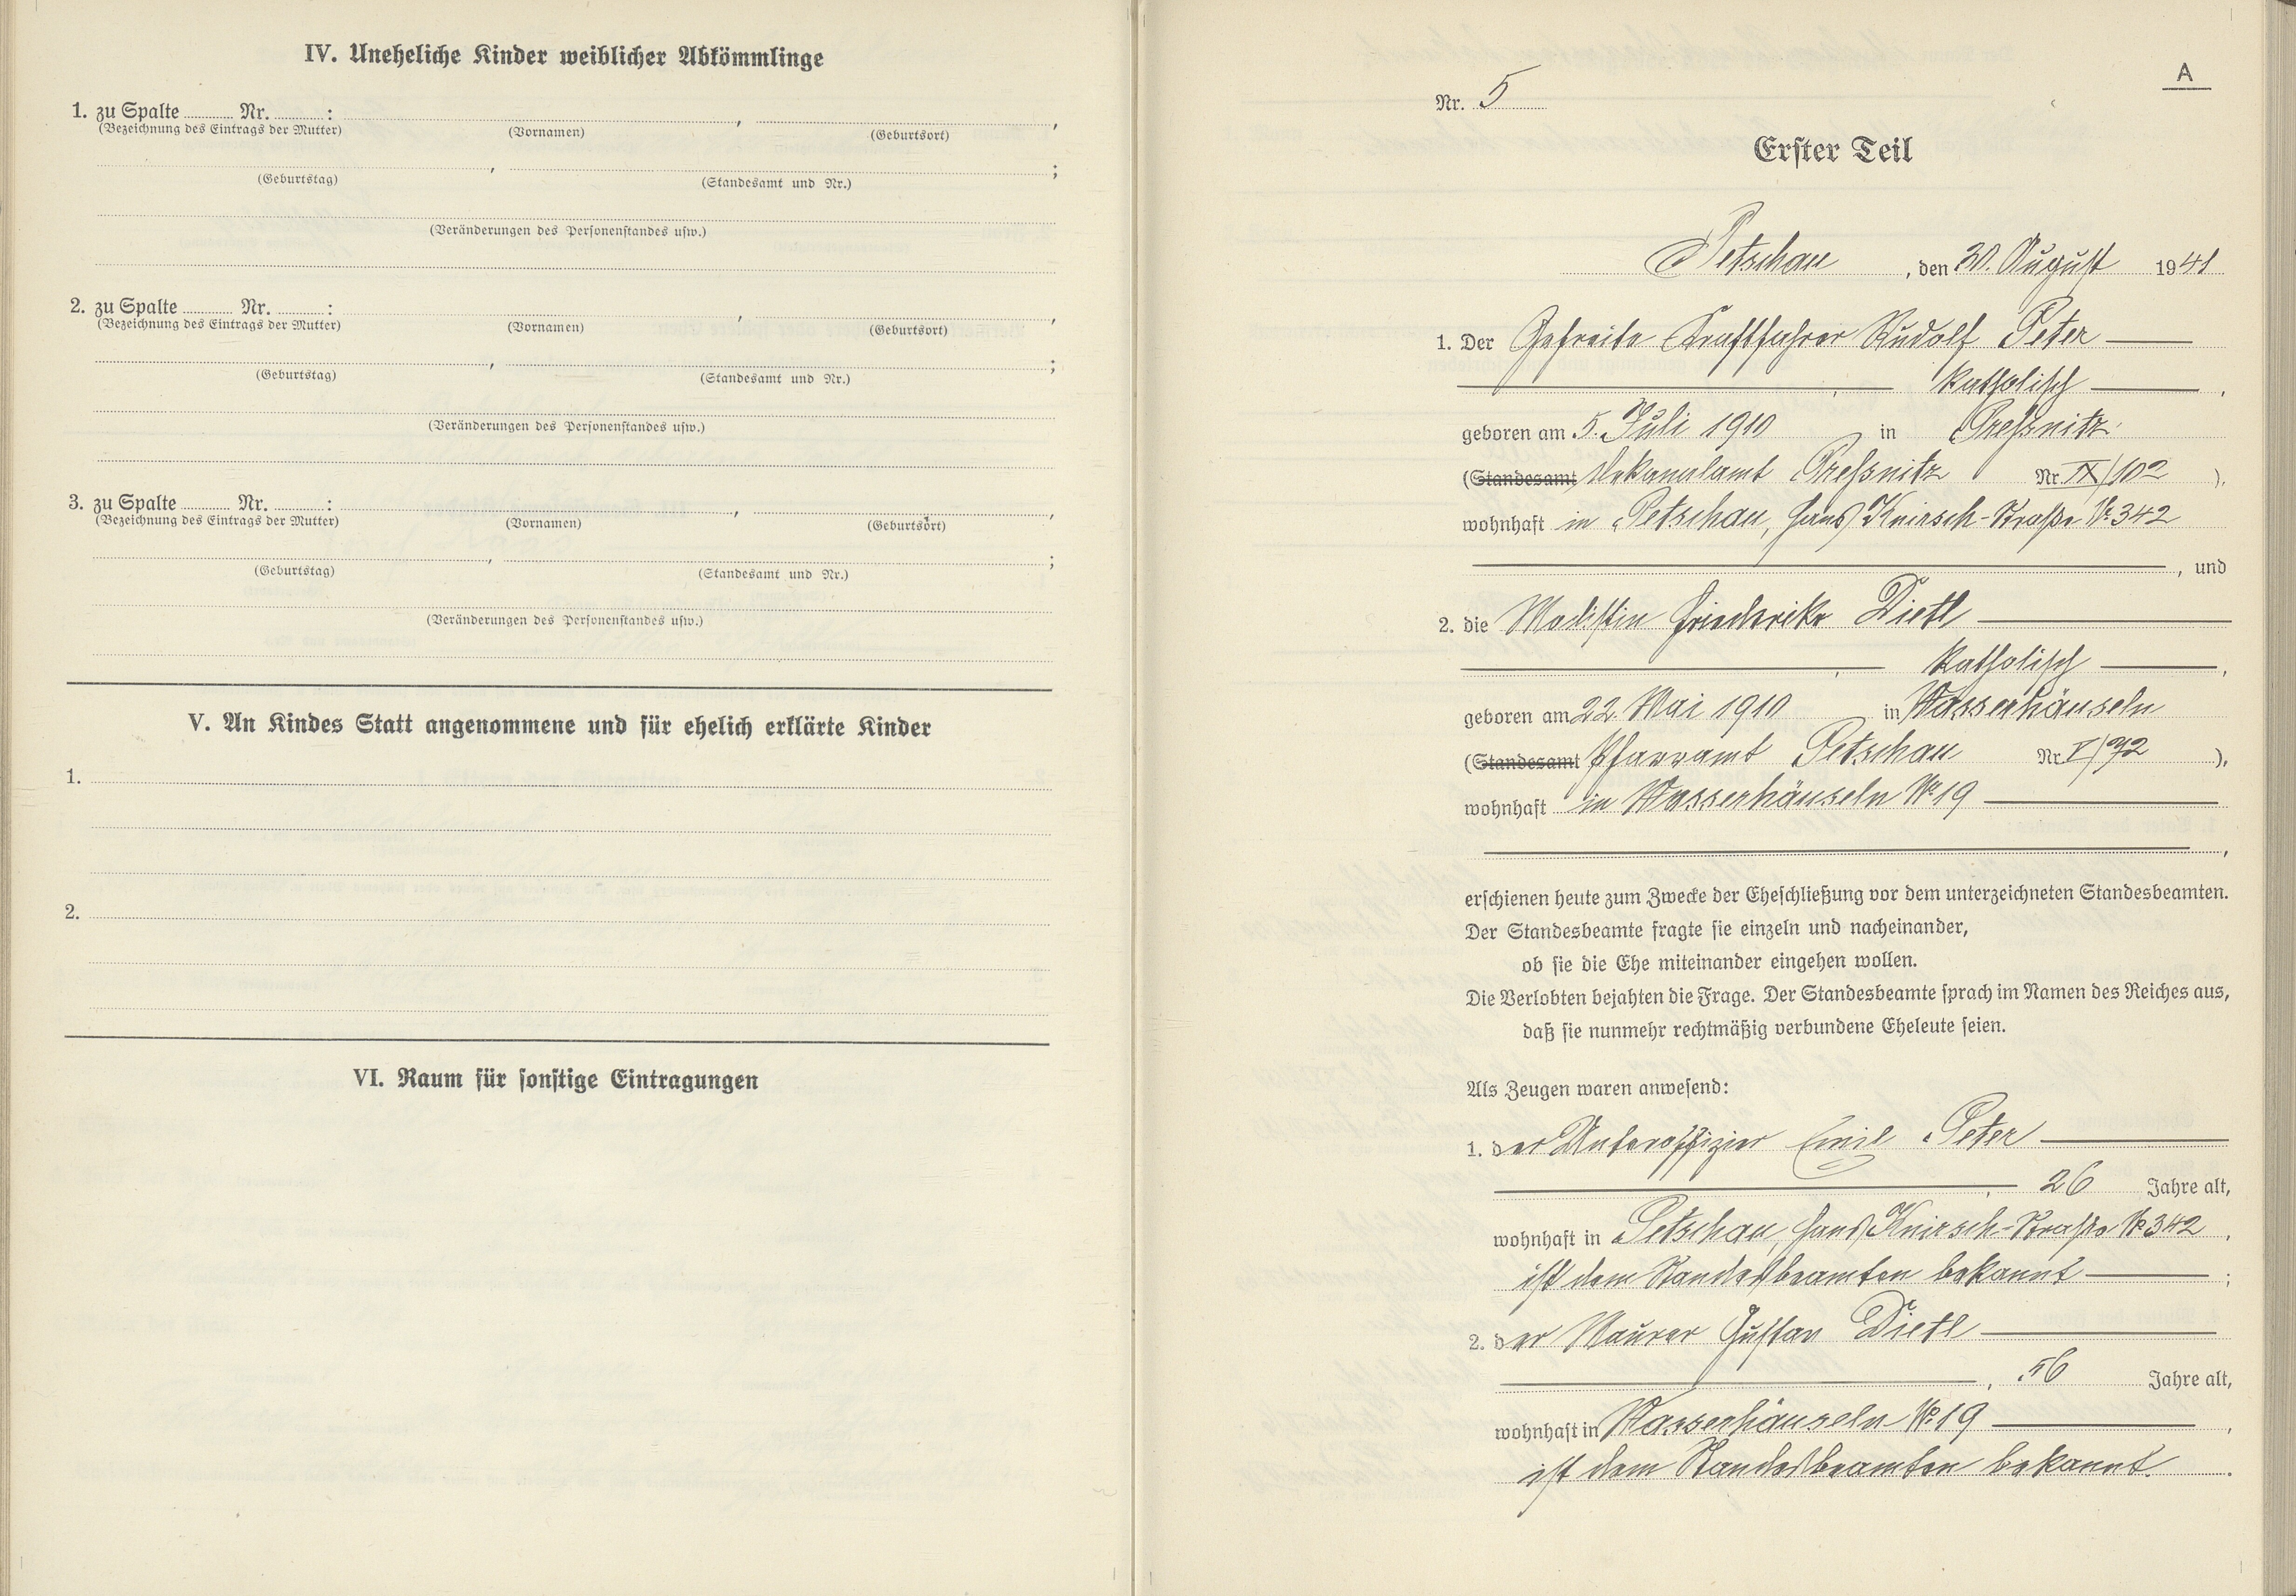 IV. Uneheliche Kinder weiblicher Abkömmlinge
1. zu Spalte ......... Nr. ......... : , ,
(Bezeichnung des Eintrags der Mutter) (Vornamen) (Geburtsort)
, ;
(Geburtstag) (Standesamt und Nr.)
(Veränderungen des Personenstandes usw.)
2. zu Spalte ......... Nr. ......... : , ,
(Bezeichnung des Eintrags der Mutter) (Vornamen) (Geburtsort)
, ;
(Geburtstag) (Standesamt und Nr.)
(Veränderungen des Personenstandes usw.)
3. zu Spalte ......... Nr. ......... : , ,
(Bezeichnung des Eintrags der Mutter) (Vornamen) (Geburtsort)
, ;
(Geburtstag) (Standesamt und Nr.)
(Veränderungen des Personenstandes usw.)
V. An Kindes Statt angenommene und für ehelich erklärte Kinder
1.
2.
VI. Raum für sonstige Eintragungen
A
Nr. 5
Erster Teil
Petschau, den 30. August 1941
1. Der Gefreite Kraftfahrer Rudolf Peter
, katholisch ,
geboren am 5. Juli 1910 in Preßnitz
(Standesamt Dekanalamt Preßnitz Nr. IX/102 ),
wohnhaft in Petschau, Hans Knirsch-Straße No 342
, und
2. die Modistin Friederike Dietl
, katholisch ,
geboren am 22. Mai 1910 in Wasserhäuseln
(Standesamt Pfarramt Petschau Nr. V/72 ),
wohnhaft in Wasserhäuseln No 19
,
erschienen heute zum Zwecke der Eheschließung vor dem unterzeichneten Standesbeamten.
Der Standesbeamte fragte sie einzeln und nacheinander,
ob sie die Ehe miteinander eingehen wollen.
Die Verlobten bejahten die Frage. Der Standesbeamte sprach im Namen des Reiches aus,
daß sie nunmehr rechtmäßig verbundene Eheleute seien.
Als Zeugen waren anwesend:
1. der Unteroffizier Emil Peter
, 26 Jahre alt,
wohnhaft in Petschau, Hans Knirsch-Straße No 342 ,
ist dem Standesbeamten bekannt ;
2. der Maurer Gustav Dietl
, 56 Jahre alt,
wohnhaft in Wasserhäuseln No 19 ,
ist dem Standesbeamten bekannt.